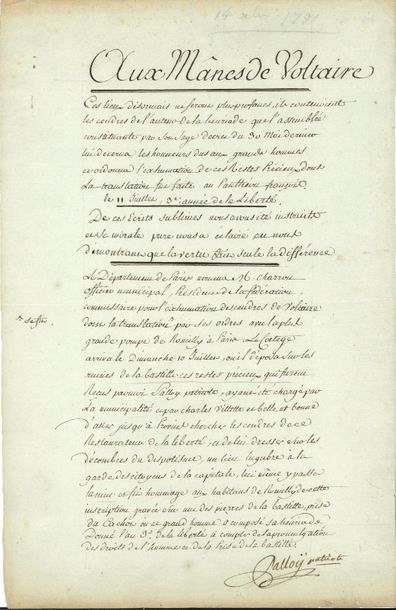 1791
Aux Mânes de Voltaire
Ces lieux désormais ne seront plus profanes, ils contiennent
les cendres de l'auteur de la henriade que l'assemblée
constituante par son sage decret du 30 Mai dernier
lui décerna les honneurs dus aux grands hommes
et ordonna l'exhumation de ces Restes Précieux dont
La translation fut faite au Panthéon français
le 11 Juillet, 3e. année de la Liberté.
De ces Ecrits sublimes nous avons été instruits
et sa morale pure nous a éclairé en nous
démontrant que la vertu fait seule la différence
Le Département de Paris nomma M. Charron
officier municipal, Président de la fédération,
commissaire pour l'exhumation des cendres de Voltaire
dont la translation se fit par ses ordres avec la plus
grande pompe de Romilly à Paris. Le Cortège
arriva le Dimanche 10 Juillet, où il déposa sur les
ruines de la bastille ces restes précieux qui furent
Reçus par moi Palloy patriote, ayant été chargé par
La municipalité et par charles Villette et belle et bonne
d'aller jusqu'à chercher les cendres de ce
Restaurateur de la liberté, et de lui dresser sur les
décombres du despotisme, un lieu lugubre à la
garde des citoyens de la capitale, lui même y passa
la nuit et fit hommage aux habitans de Romilly de cette
inscription gravée sur une des pierres de la bastille, prise
du Cachot où ce grand homme a composé sa henriade
Donné l'an 3e. de la liberté à compter de la promulgation
des droits de l'homme et de la Prise de la bastille.
Palloy patriote